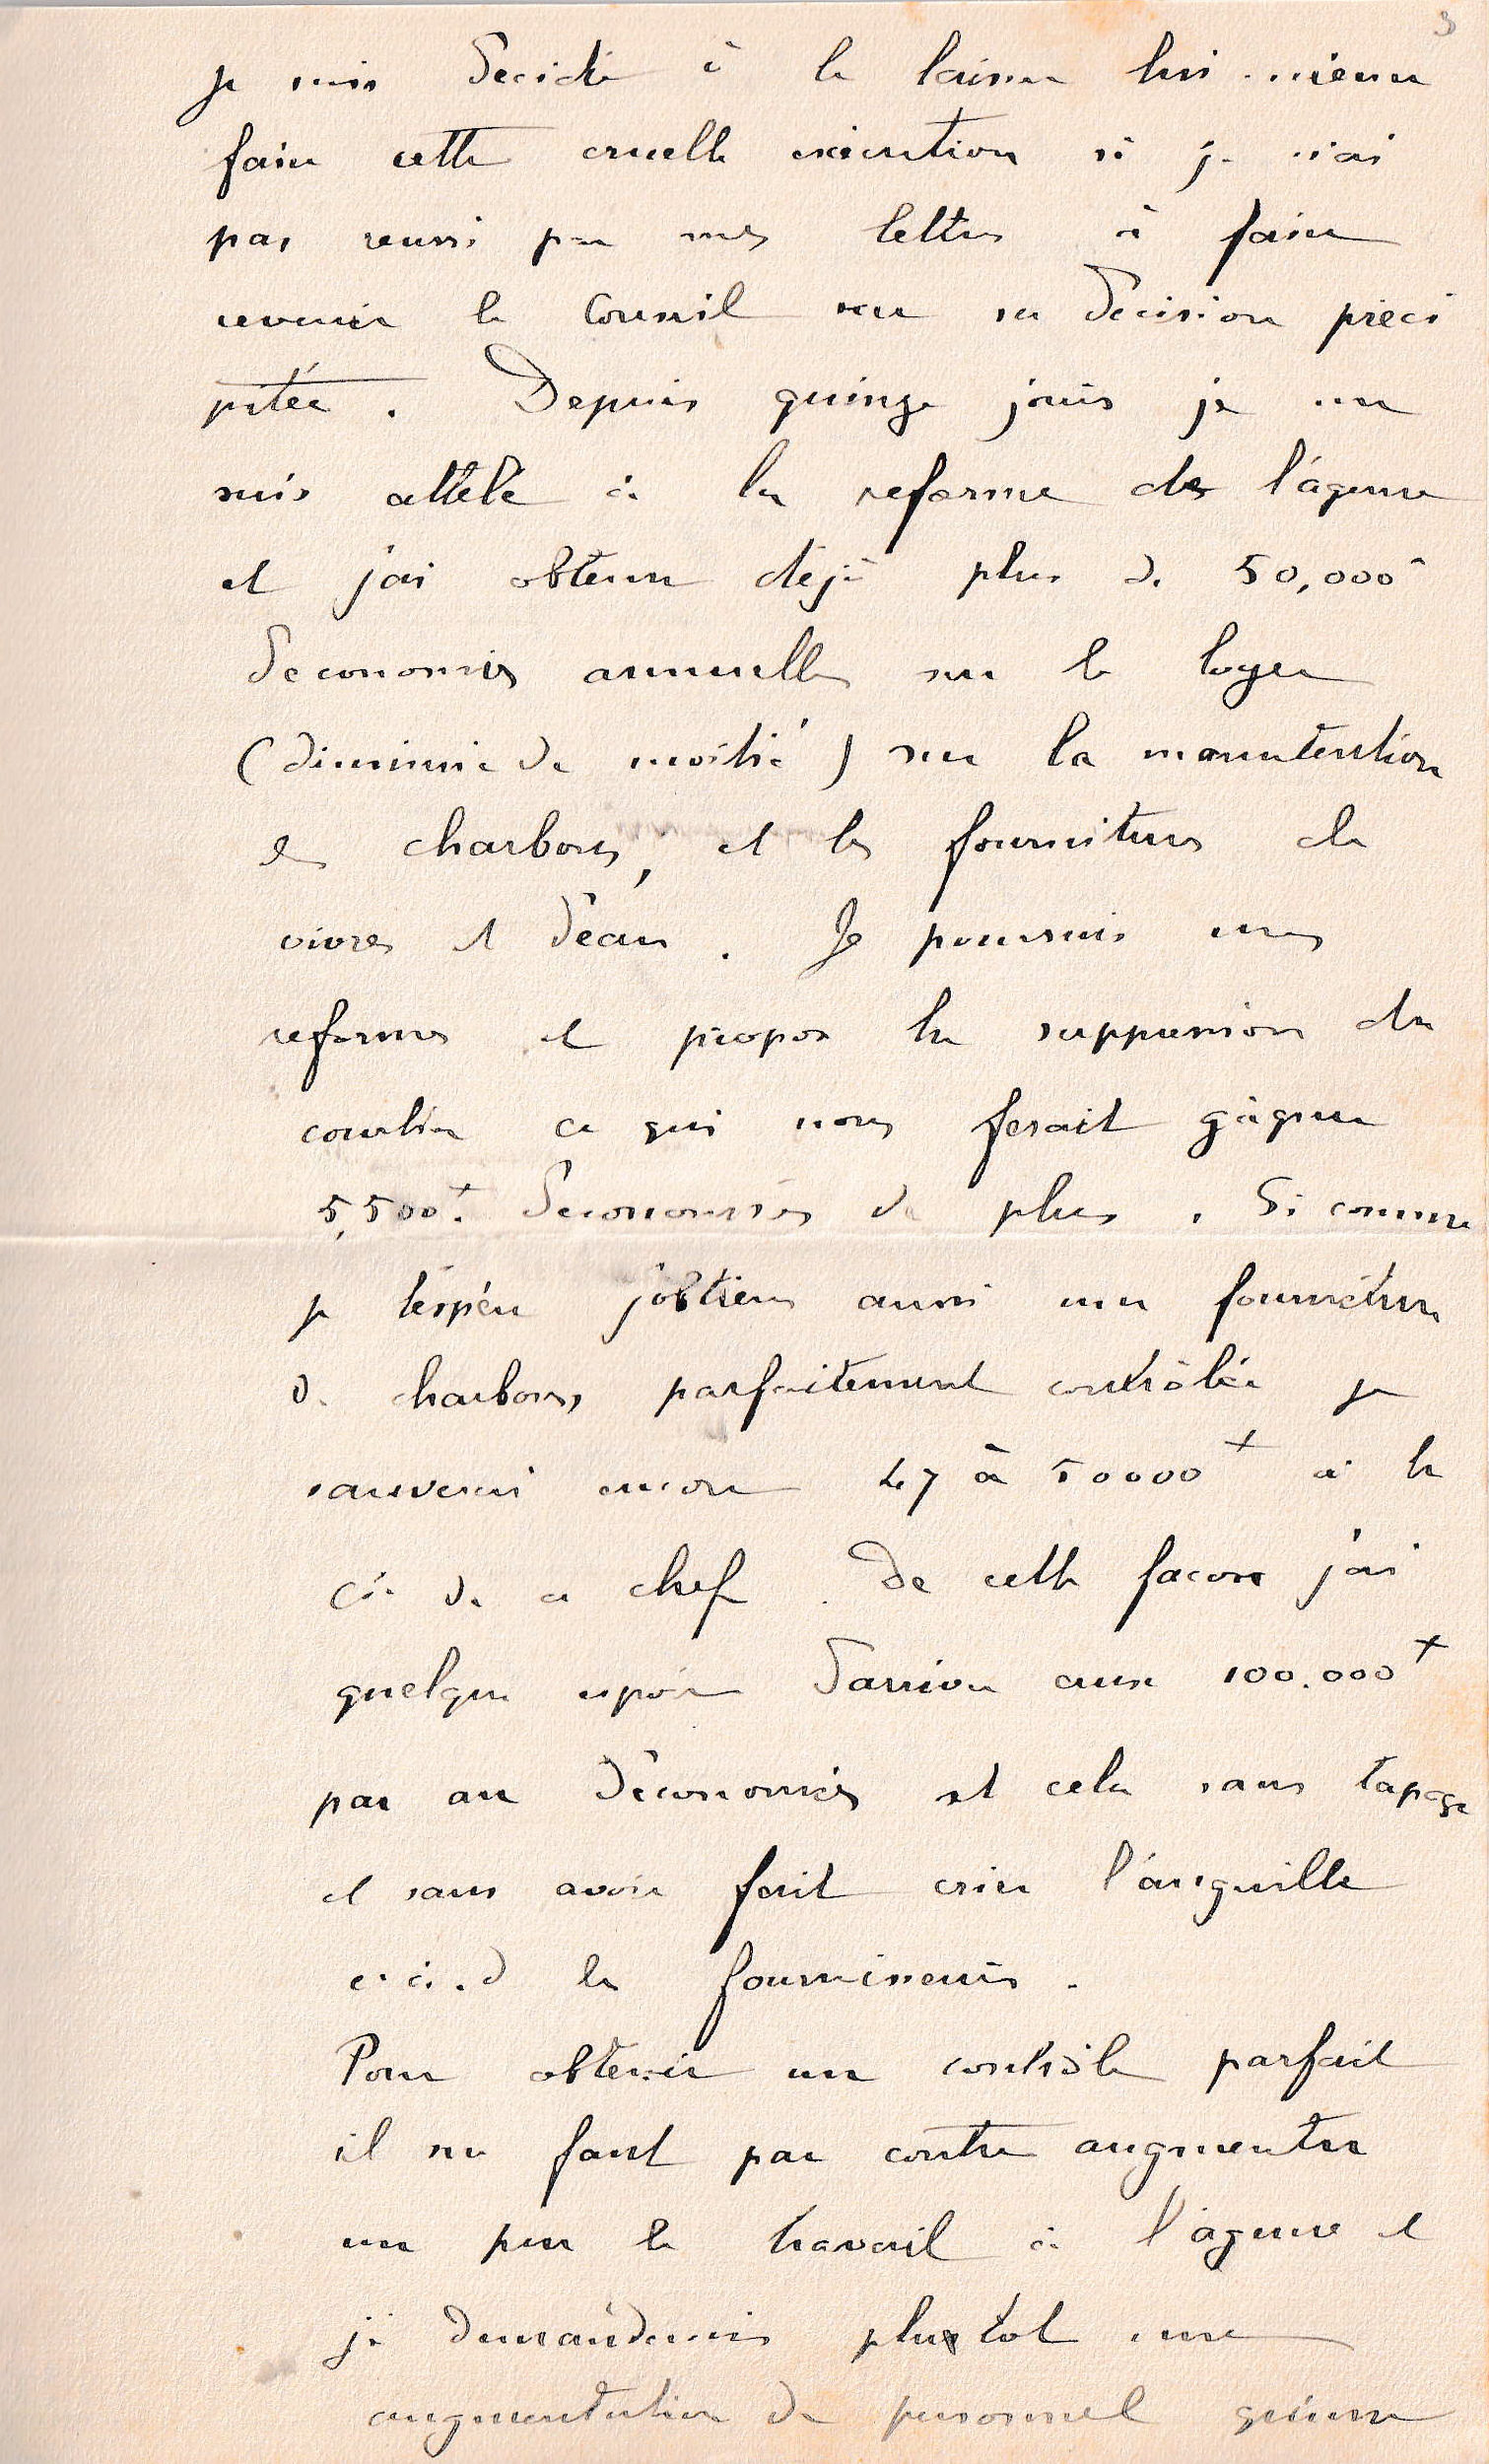 3
je suis decidé à le laisser lui-même
faire cette cruelle exécution si je n'ai
pas reussi par mes lettres à faire
revenir le Conseil sur sa décision préci
pitée. Depuis quinze jours je me
suis attelé à la reforme de l'agence
et j'ai obtenu déjà plus de 50,000
d'economies annuelles sur le loyer
(diminué de moitié) sur la manutention
des charbons, et les fournitures de
vivres et d'eau. Je poursuis mes
reformes et propose la suppression du
courtier ce qui nous ferait gagner
5,500+. d'economies de plus. Si comme
je l'espère j'obtiens aussi une fourniture
de charbons parfaitement contrôlée je
sauverai encore 47 à 50000+ à la
Cie de ce chef. De cette facon j'ai
quelque espoir d'arriver aux 100.000+
par an d'économies et cela sans tapage
et sans avoir fait crier l'anguille
c.à.d les fournisseurs.
Pour obtenir un contrôle parfait
il me faut par contre augmenter
un peu le travail à l'agence et
je demanderais plustot une
augmentation de personnel qu'une